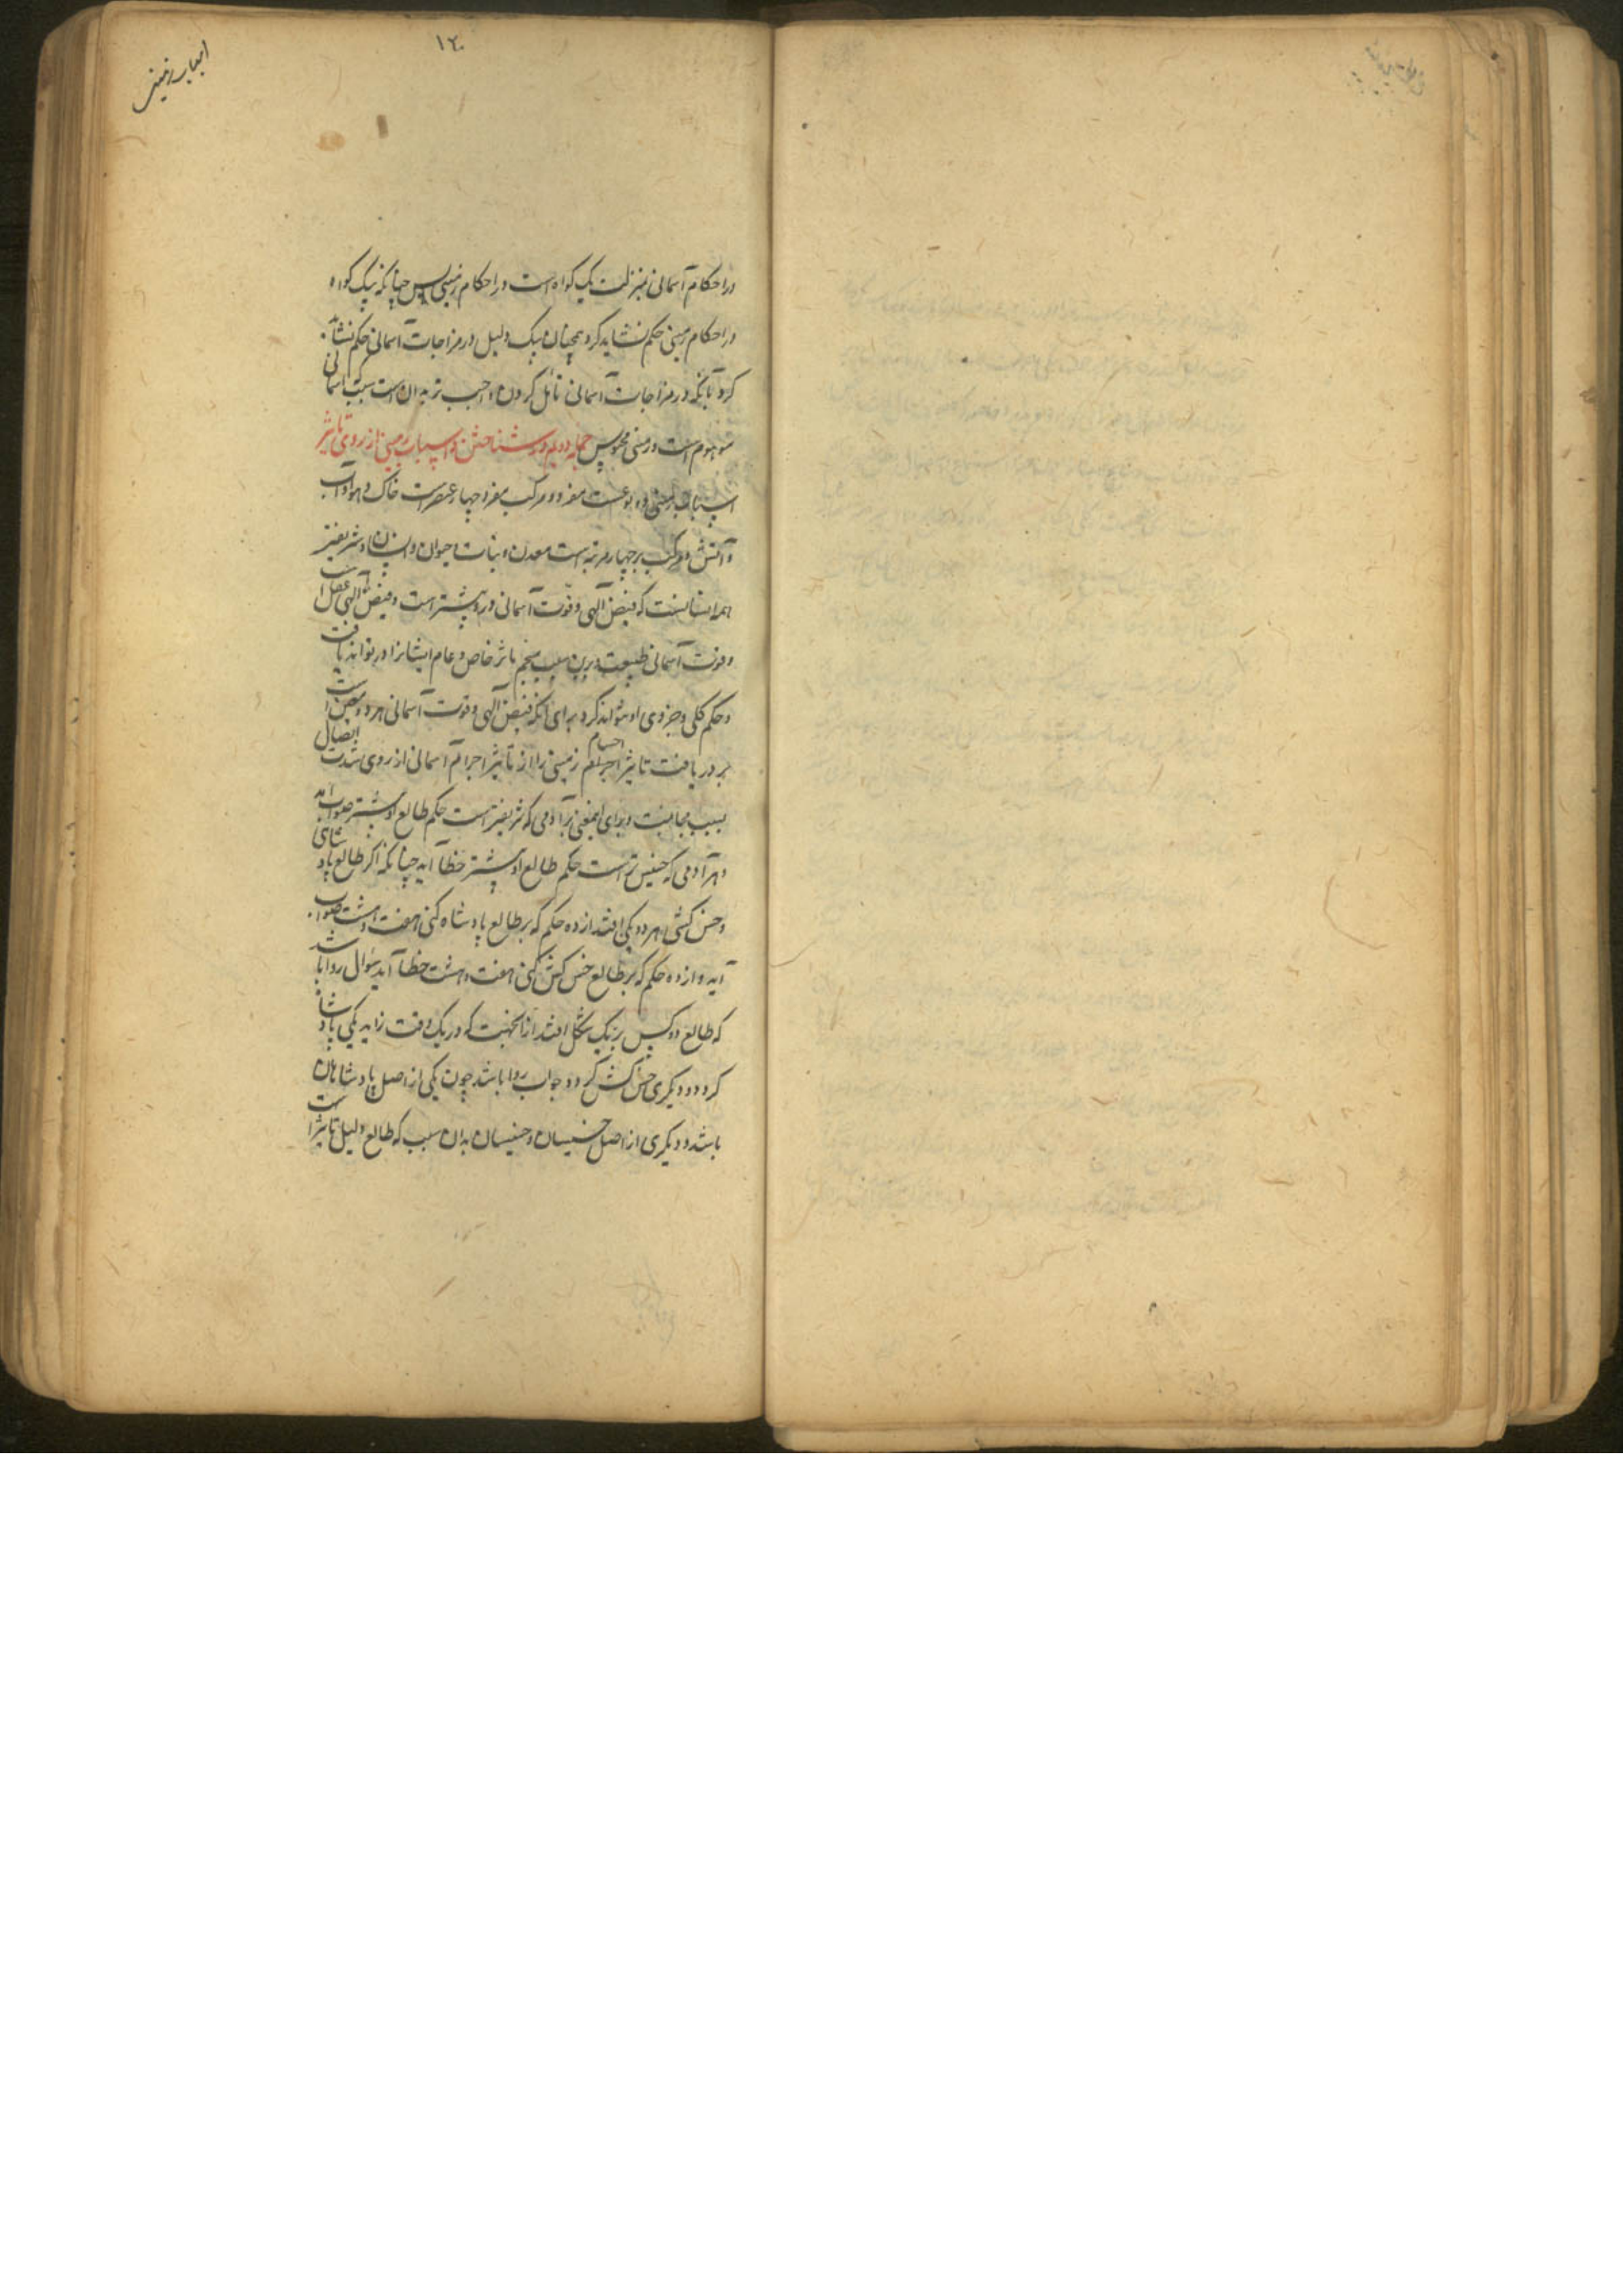 ۱۲۰
در احکام آسمانی بمنزلت یک کواه است در احکام زمینی پس چنانکه بیک کواه
در احکام زمینی حکم نشاید کرد همچنان بیک دلیل در مزاجات آسمانی حکم نشاید
کرد بآنکه در مزاجات آسمانی تأمل کردن واجب تر بدان است سبب آسمانی
موهوم است و زمینی محسوس جمله دویم در شناختن اسباب زمینی از روی تاثیر
اسباب زمینی دو نوعست مفرد و مرکب مفرد چهار عنصرست خاک و هوا و آب
و آتش و مرکب بر چهار مرتبه است معدن و نبات و حیوان و انسان و شریفتر
همه انسانست که فیض آلهی و قوت آسمانی درو پیشتر است و فیض آلهی عقل است
و قوت آسمانی طبیعت و برین سبب منجم تاثر خاص و عام ایشانرا در تواند یافت
و حکم کلی و جزوی او بتواند کرد برای آنکه فیض آلهی و قوت آسمانی هر دو معین است
بر دریافت تاثیر اجسام زمینی را از تأثیر اجرام آسمانی از روی شدت اتصال
بسبب مجانبت و برای اینمعنی هر آدمی که شریفتر است حکم طالع او پیشتر صواب آید
و هر آدمی که خسیس تر است حکم طالع او پیشتر خطا آید چنانکه اکر طالع پادشاهی
و خس کشی هر دو یکی افتد از ده حکم که بر طالع پادشاه کنی هفت و هشت صواب
آید و از ده حکم که بر طالع خس کش کنی هفت و هشت خطا آید سؤال روا باشد
که طالع دو کس بر یک شکل افتد از آنجهت که در یک وقت زاید یکی پادشاه
کردد و دیکری خس کش کردد جواب روا باشد چون یکی از اصل پادشاهان
باشد و دیکری از اصل خسیسان و خسیسان بدان سبب که طالع دلیل تاثیر است